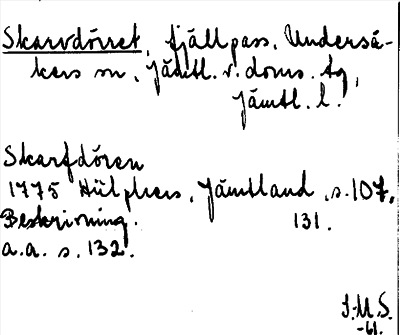 Skarvdörret, fjällpass, Underså-
kers sn, Jämtl. v. doms. tg,
Jämtl. l.
Skarfdören
1775 Hülphers, Jämtland, s. 107,
Beskrivning. 131.
a.a. s. 132.
I.M.S.
-61.